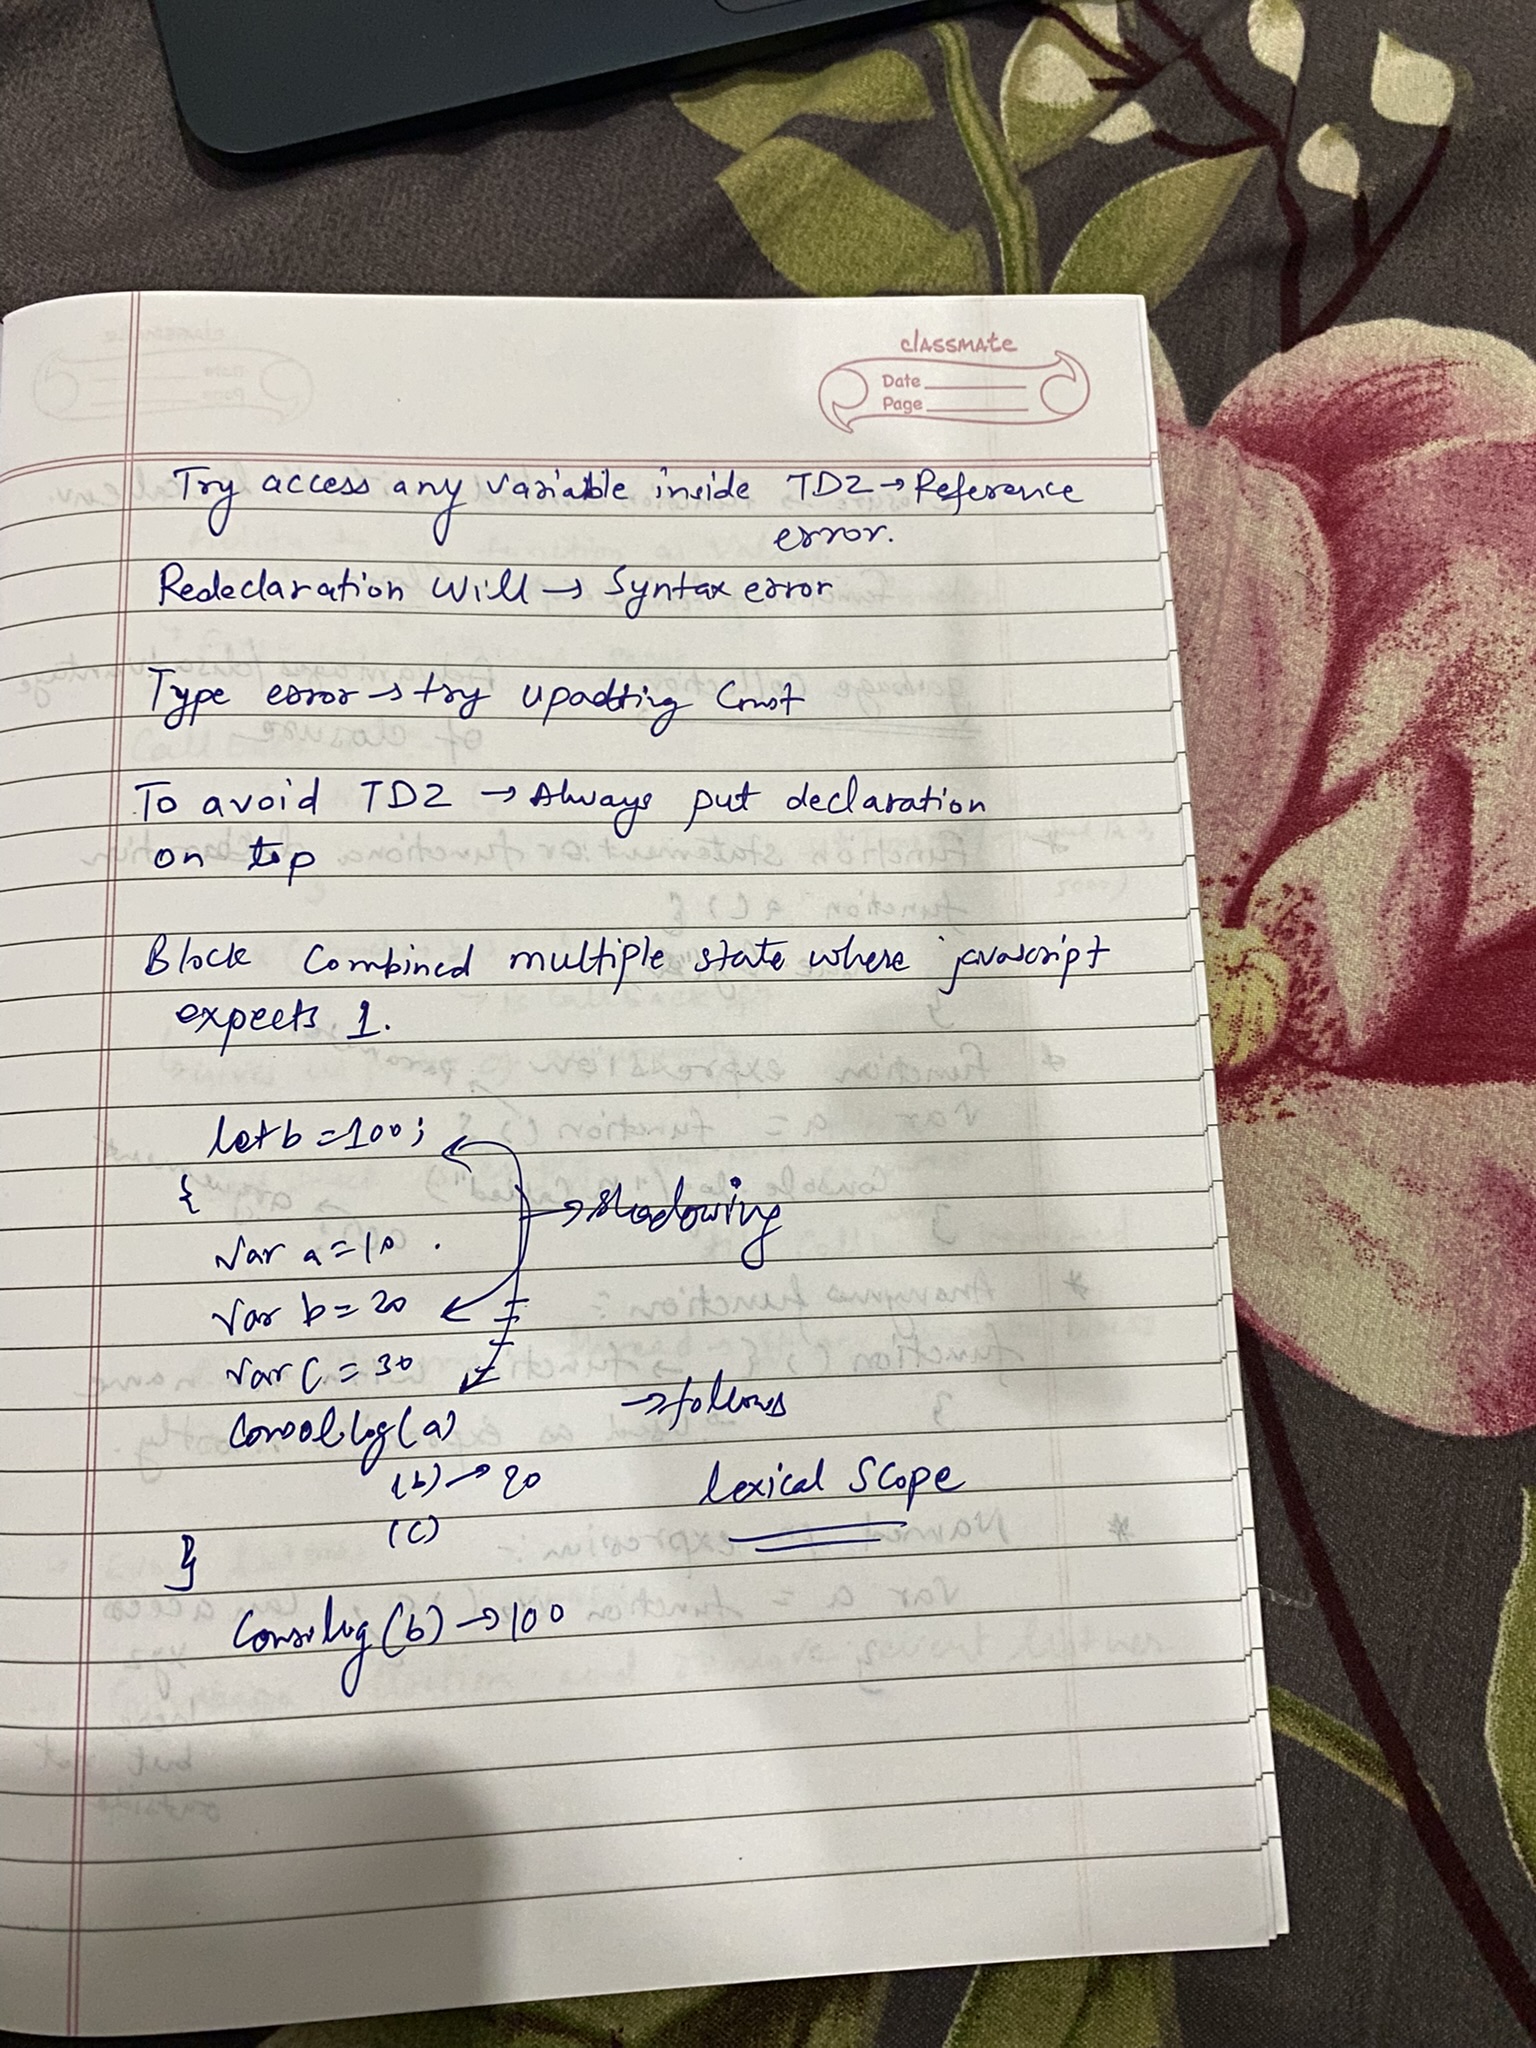 classmate
Date
Page
Try access any variable inside TDZ → Reference
error.
Redeclaration will → Syntax error
Type error → try upadting Const
To avoid TDZ → Always put declaration
on top
Block Combined multiple state where javascript
expects 1.
let b = 100;
{
→ shadowing
var a = 10
var b = 20
var c = 30
→ follows
Consol log (a)
(b) → 20
lexical Scope
(c)
}
Conso log (b) → 100